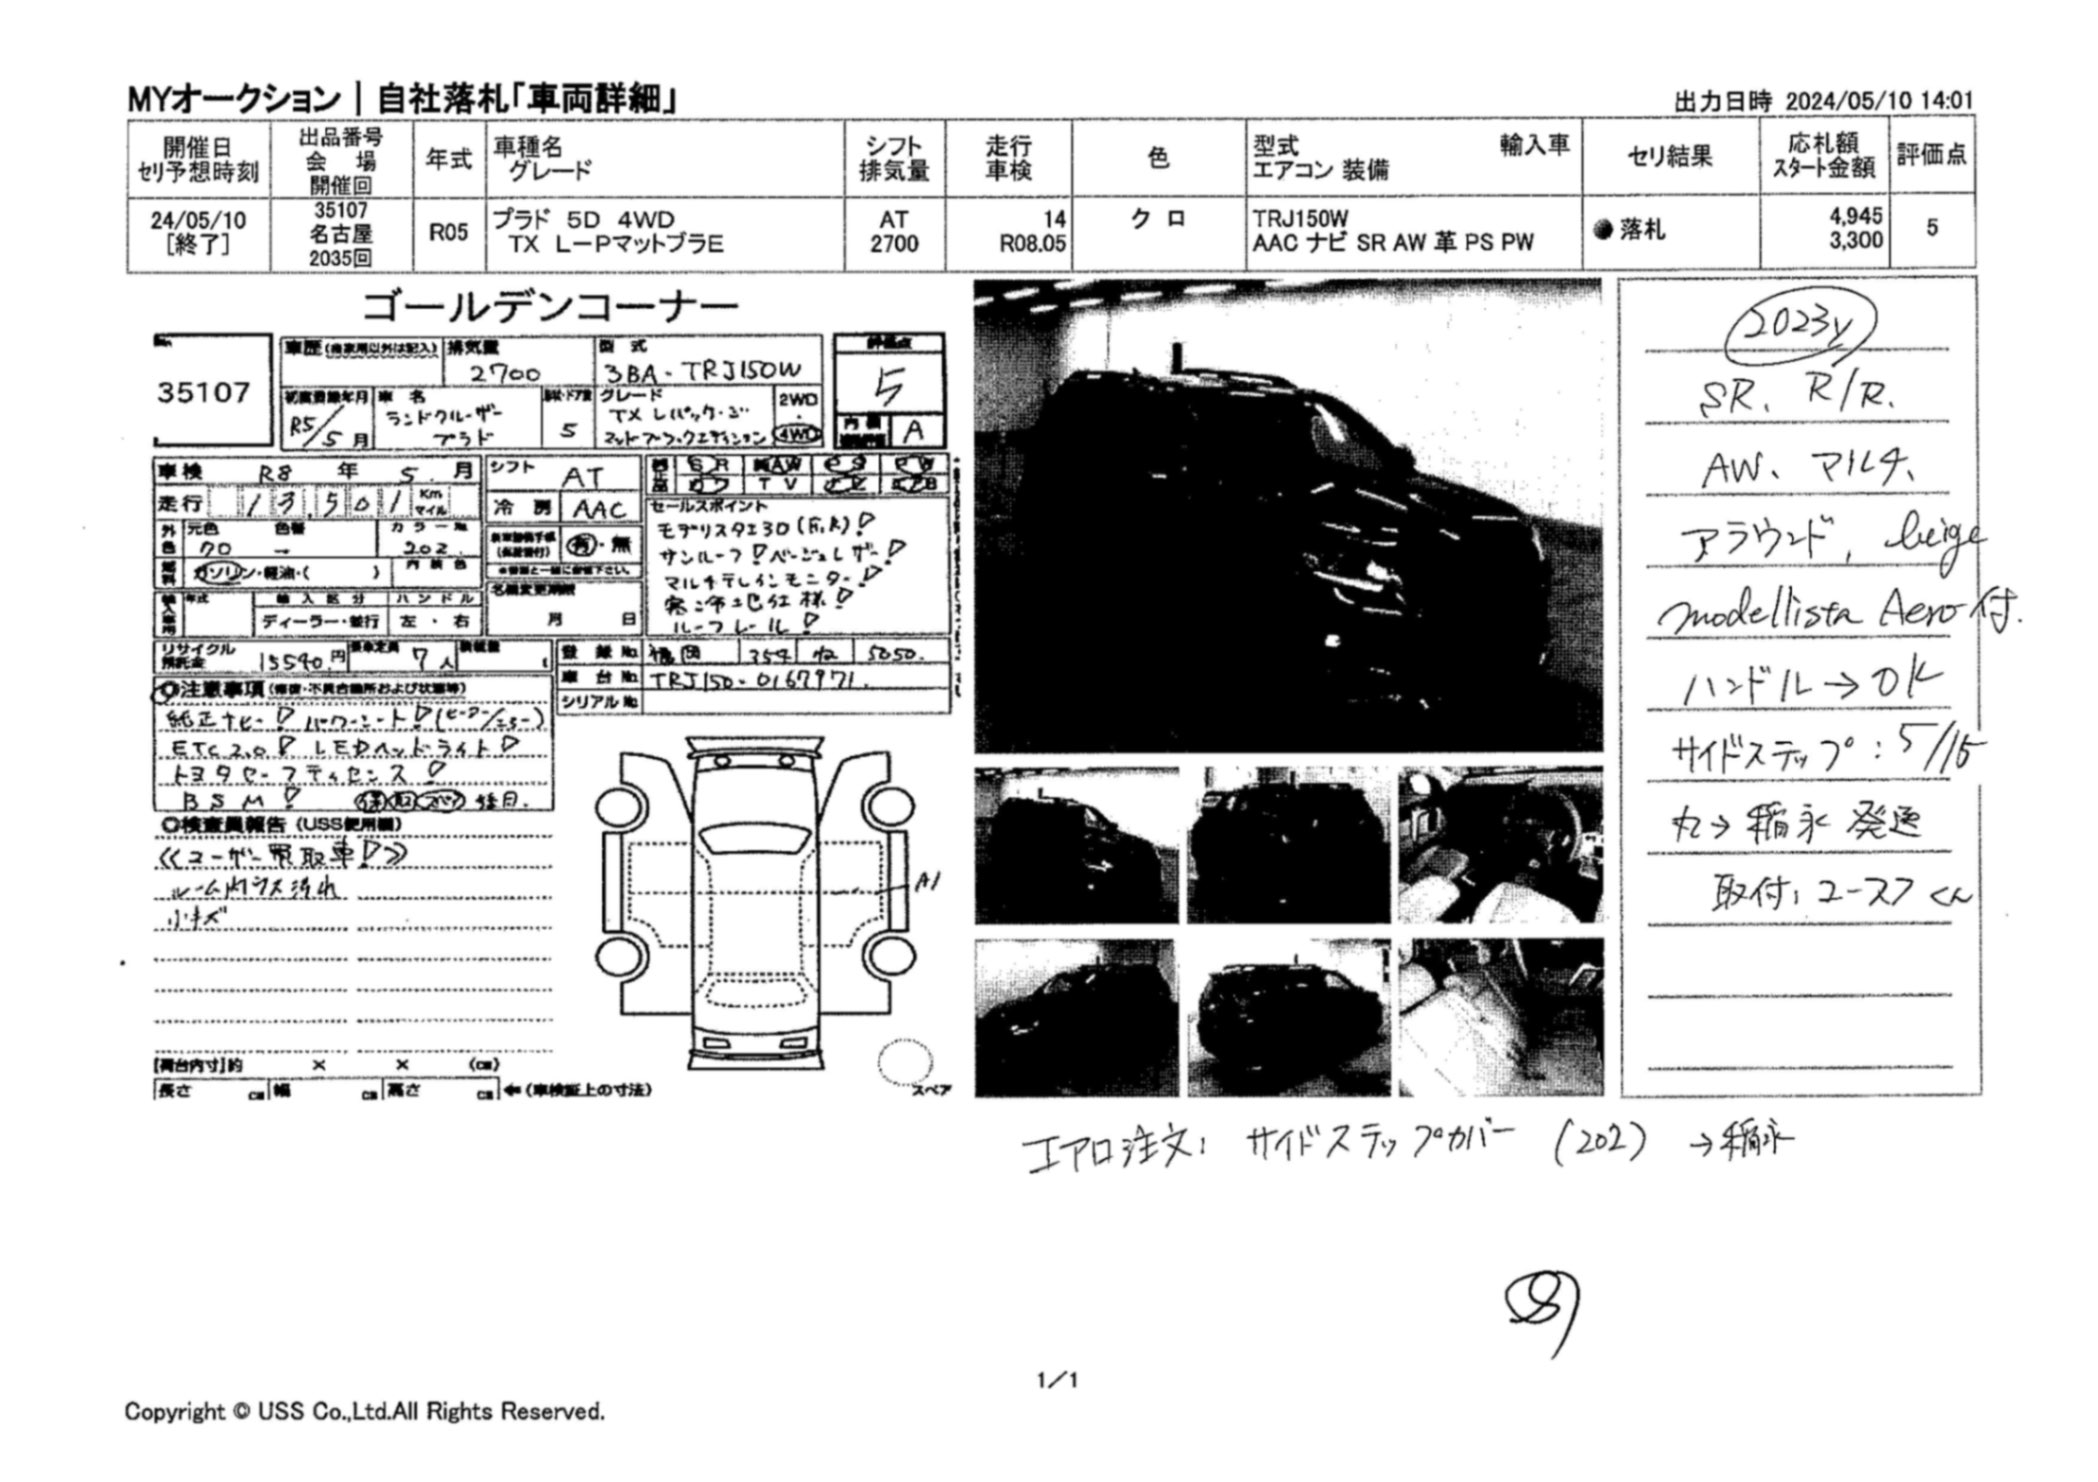 MYオークション | 自社落札「車両詳細」
出力日時 2024/05/10 14:01
開催日 セリ予想時刻
出品番号 会場 開催回
年式
車種名 グレード
シフト 排気量
走行 車検
色
型式 輸入車 エアコン 装備
セリ結果
応札額 スタート金額
評価点
24/05/10 [終了]
35107 名古屋 2035回
R05
プラド 5D 4WD
TX L-PマットブラE
AT 2700
14 R08.05
クロ
TRJ150W
AAC ナビ SR AW 革 PS PW
●落札
4,945
3,300
5
ゴールデンコーナー
35107
車歴(自家用以外は記入) 排気量 2700
型式 3BA-TRJ150W
評価点 5
初度登録年月 R5/5月
車名 ランドクルーザー プラド
ドア 5
グレード TX Lパッケージ マットブラックエディション
2WD・4WD
内装 A
車検 R8年 5月
シフト AT
SR AW PS PW
TV
走行 13,501 Km マイル
冷房 AAC
セールスポイント
モデリスタエアロ(F,R)!
サンルーフ!ベージュレザー!
マルチテレインモニター!
寒冷地仕様!
ルーフレール!
外色 元色 クロ 色替 → カラーNo. 202
有・無
燃料 ガソリン・軽油・( ) 内装色
名義変更期限
月 日
輸入車用 年式 輸入区分 ハンドル
ディーラー・並行 左・右
リサイクル預託金 15540円 乗車定員 7人 積載量 t
登録No. 福岡 354 5050
車台No. TRJ150-0167971
シリアルNo.
◎注意事項(修復・不具合箇所および状態等)
純正ナビ! パワーシート!(ヒーター/エアー)
ETC2.0! LEDヘッドライト!
トヨタセーフティセンス!
BSM! 後日.
◎検査員報告(USS使用欄)
≪ユーザー買取車!≫
ルーム内ウス汚れ
小キズ
A1
[荷台内寸]約 × × (cm)
長さ cm 幅 cm 高さ cm ←(車検証上の寸法)
スペア
2023y
SR、R/R.
AW、マルチ、
アラウンド, beige
modellista Aero付.
ハンドル→OK
サイドステップ:5/15
丸→稲永 発送
取付:ユースフくん
エアロ注文: サイドステップカバー (202) →稲永
1/1
Copyright © USS Co.,Ltd.All Rights Reserved.